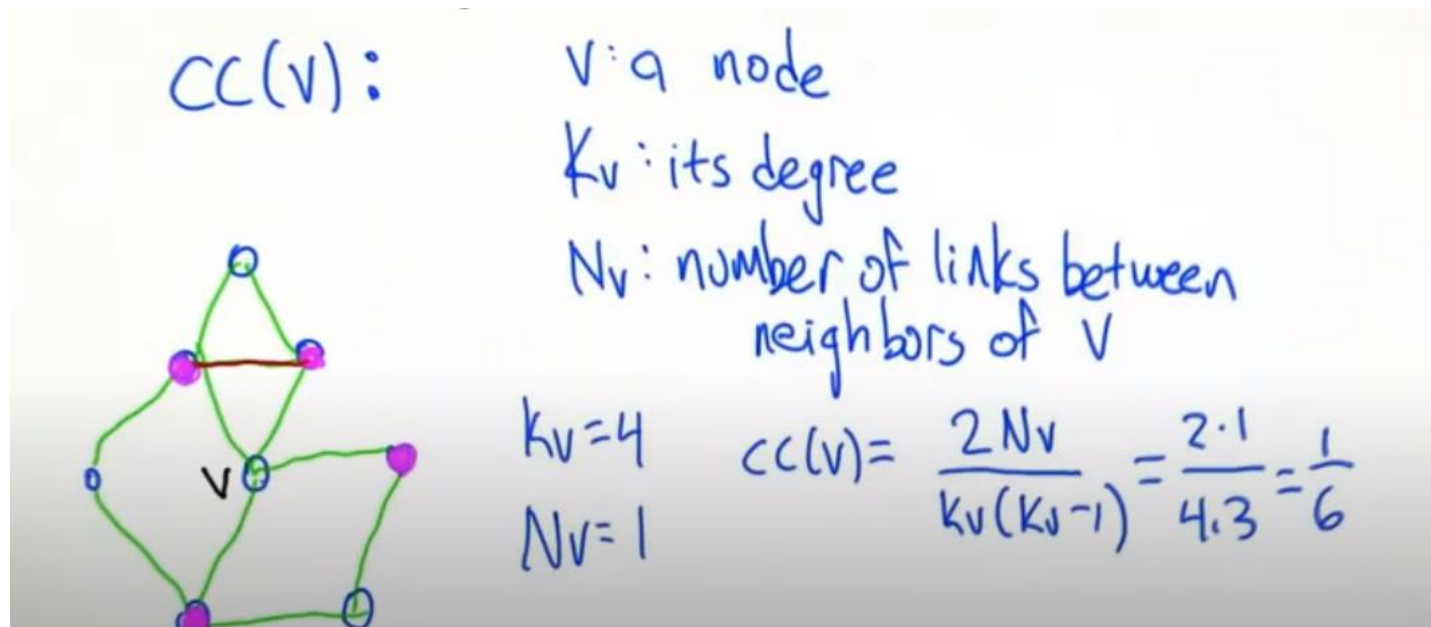 CC(V):
V: a node
Kv: its degree
Nv: number of links between
neighbors of V
Kv=4
CC(V)= 2Nv / Kv(Kv-1) = 2·1 / 4.3 = 1 / 6
V
Nv=1